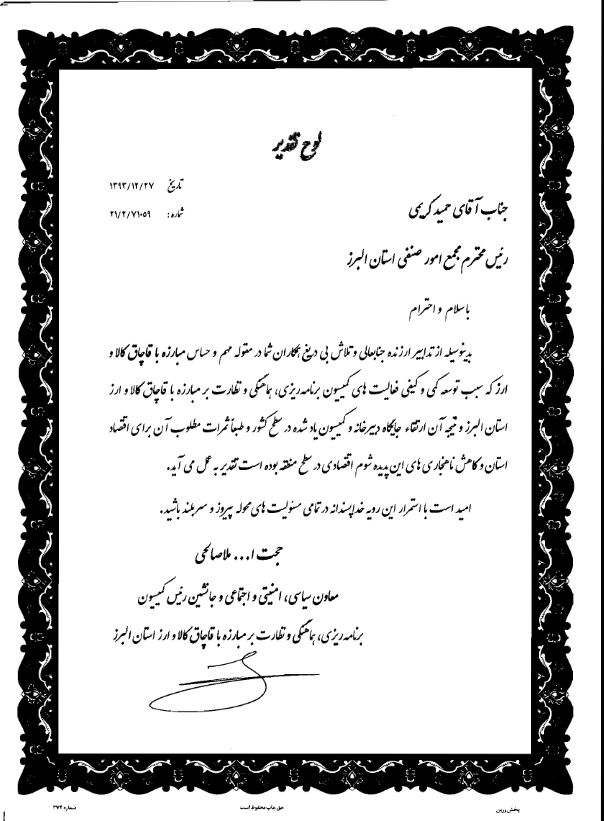 لوح تقدیر
تاریخ ۱۳۹۳/۱۲/۲۷
شماره: ۲۱/۲/۷۱۰۵۹
جناب آقای حمید کریمی
رئیس محترم مجمع امور صنفی استان البرز
باسلام و احترام
بدینوسیله از تدابیر ارزنده جنابعالی و تلاش بی دریغ همکاران شما در مقوله مهم و حساس مبارزه با قاچاق کالا و
ارز که سبب توسعه کمی و کیفی فعالیت های کمیسیون برنامه ریزی، هماهنگی و نظارت بر مبارزه با قاچاق کالا و ارز
استان البرز و نتیجه آن ارتقاء جایگاه دبیرخانه و کمیسیون یاد شده در سطح کشور و طبعاً ثمرات مطلوب آن برای اقتصاد
استان و کاهش ناهنجاری های این پدیده شوم اقتصادی در سطح منطقه بوده است تقدیر به عمل می آید.
امید است با استمرار این رویه خداپسندانه در تمامی مسئولیت های محوله پیروز و سربلند باشید.
حجت ا... ملاصالحی
معاون سیاسی، امنیتی و اجتماعی و جانشین رئیس کمیسیون
برنامه ریزی، هماهنگی و نظارت بر مبارزه با قاچاق کالا و ارز استان البرز
پخش ورین
حق چاپ محفوظ است
شماره ۳۷۲